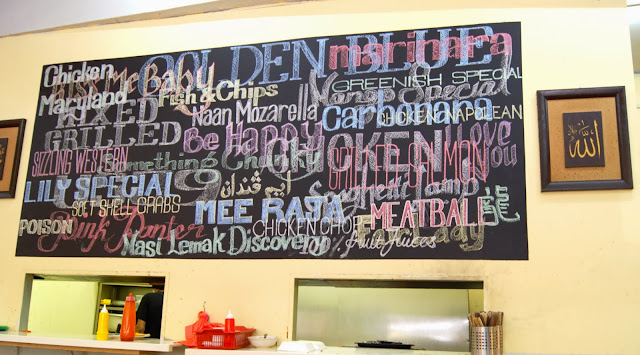 GOLDEN BLUE
marinara
Chicken
Kiss me Baby
GREENISH SPECIAL
Maryland
Fish & Chips
MIXED
Naan Mozarella
Special
Carbonara
CHICKEN NAPOLEAN
GRILLED
Be Happy
Love
You
SIZZLING WESTERN
Something Chunky
GRILLED SALMON
LILY SPECIAL
SOFT SHELL CRABS
MEE RAJA
MEATBALL
POISON
Pink Panter
CHICKEN CHOP
Lady
Nasi Lemak Discovery
Fruit Juices
الله